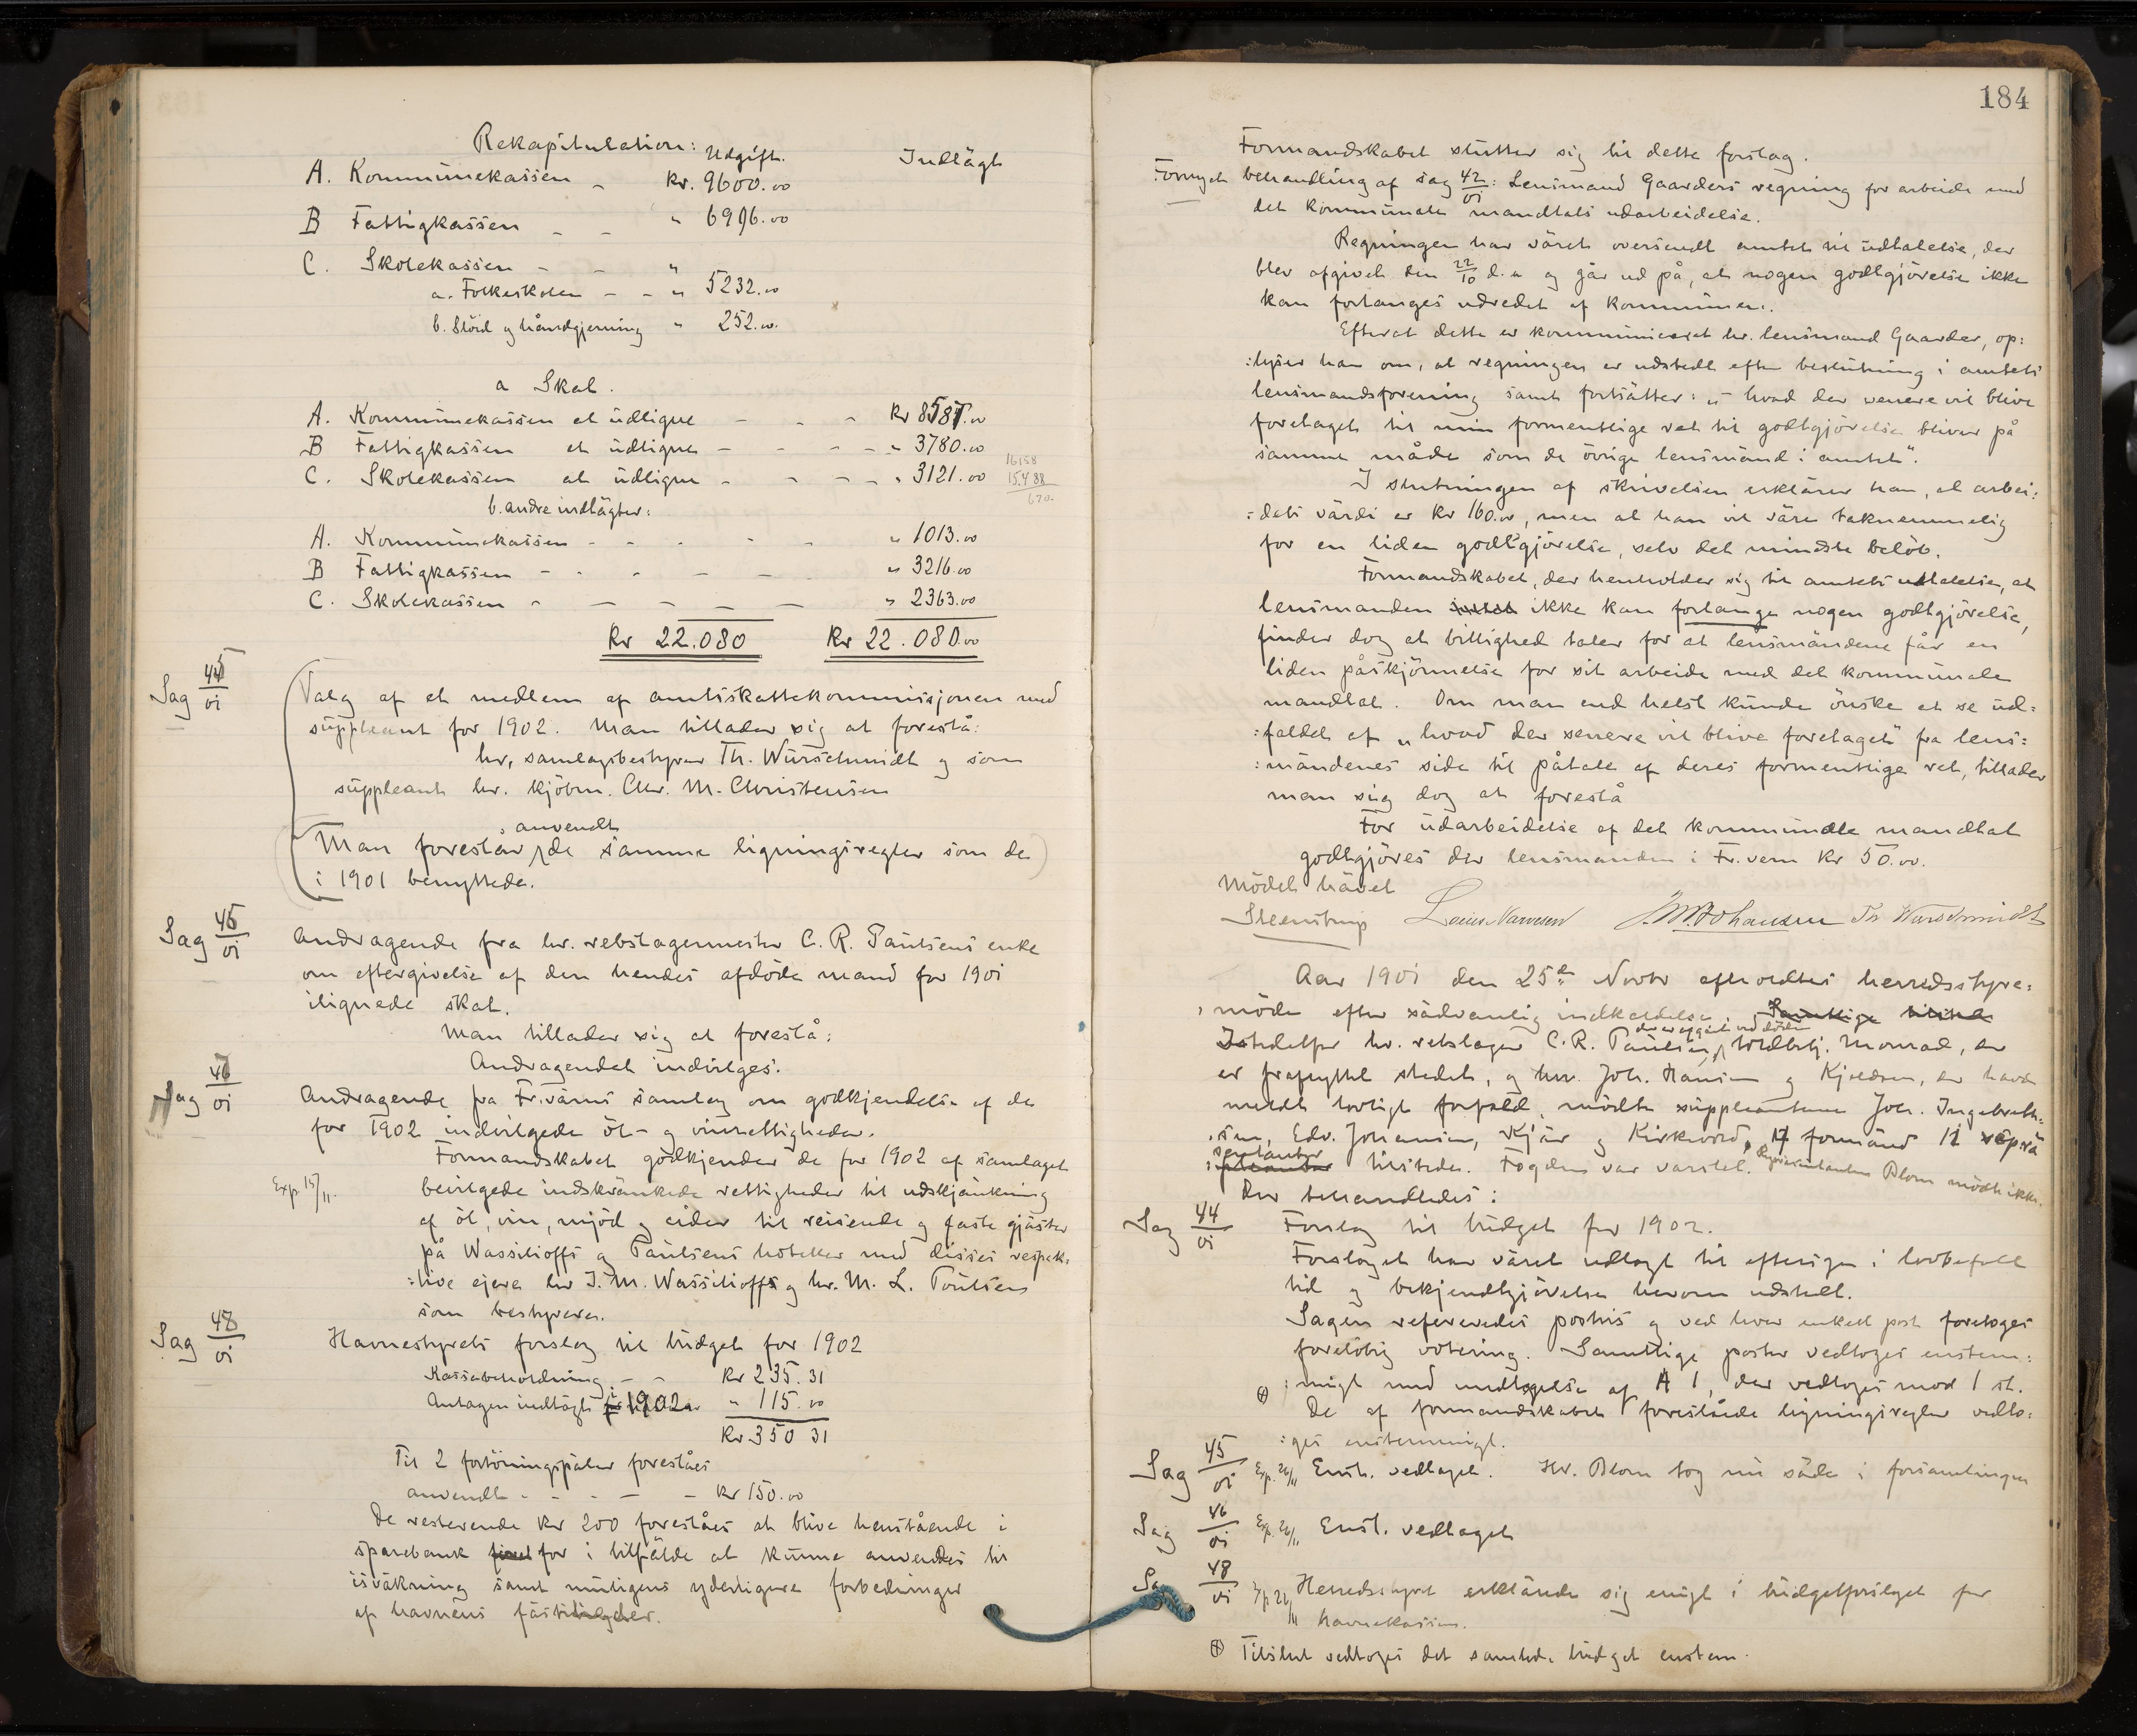 Rekapitulation: Udgift. Indtägt
A. Kommunekassen - kr. 9600.00
B Fattigkassen - - " 6996.00
C. Skolekassen - - "
a. Folkeskolen - - " 5232.00
b. Slöid og håndgjerning " 252.00.
a Skat.
A. Kommunekassen at udligne - - - kr 8587.00
B Fattigkassen at udligne - - - - " 3780.00
C. Skolekassen at udligne - - - - " 3121.00
16158
15488
670.
b. andre indtägter:
A. Kommunekassen - - - - - " 1013.00
B Fattigkassen - - - - - " 3216.00
C. Skolekassen - - - - - " 2363.00
kr 22.080 kr 22.080.00
Sag 45/01
Valg af et medlem af amtsskattekommissjonen med
suppleant for 1902. Man tillader sig at foreslå:
hr. samlagsbestyrer Th. Würschmidt og som
suppleant hr. kjöbm. Chr. M. Christensen
anvendt
Man foreslår de samme ligningsregler som de
i 1901 benyttede.
Sag 45/01
Andragende fra hr. rebslagermester C. R. Paulsens enke
om eftergivelse af den hendes afdöde mand for 1901
ilignede skat.
Man tillader sig at foreslå:
Andragendet indvilges.
Sag 46/01
Andragende fra Fr.värns samlag om godkjendelse af de
for 1902 indvilgede öl- og vinrettigheder.
Formandskabet godkjender de for 1902 af samlaget
Exp. 15/11.
bevilgede indskränkede rettigheder til udskjänkning
af öl, vin, mjöd og cider til reisende og faste gjäster
på Wassilioffs og Paulsens hoteller med disses respek:
:tive ejere hr J. M. Wassilioff og hr. M. L. Poulsen
som bestyrere.
Sag 48/01
Havnestyrets forslag til budget for 1902
Kassabeholdning - - kr 235.31
Antagen indtägt i 1902 " 115.00
kr 350 31
Til 2 fortöiningspäler foreslåes
anvendt - - - - - kr 150.00
De resterende kr 200 foreslåes at blive henstående i
sparebank for i tilfälde at kunne anvendes til
isväkning samt muligens yderligere forbedringer
af havnens fästligheder.
184
Formandskabet slutter sig til dette forslag.
Fornyet behandling af sag 42/01: Lensmand Gaarders regning for arbeide med
det kommunale mandtals udarbeidelse.
Regningen har väret oversendt amtet til udtalelse, der
blev afgivet den 22/10 d. a og går ud på, at nogen godtgjörelse ikke
kan forlanges udredet af kommunen.
Efterat dette er kommuniceret hr. lensmand Gaarder, op:
:lyser han om, at regningen er udstedt efter beslutning i amtets
lensmandsforening samt fortsätter: "hvad der senere vil blive
foretaget til min formentlige ret til godtgjörelse bliver på
samme måde som de övrige lensmänd i amtet".
I slutningen af skrivelsen erklärer han, at arbei:
:dets värdi er kr 160.00, men at han vil väre taknemmelig
for en liden godtgjörelse, selv det mindste belöb.
Formandskabet, der henholder sig til amtets udtalelse, at
lensmanden ikke kan forlange nogen godtgjörelse,
finder dog at billighed taler for at lensmändene får en
liden påskjönnelse for sit arbeide med det kommunale
mandtal. Om man end helst kunde önske at se ud:
:faldet af "hvad der senere vil blive foretaget" fra lens:
:mändenes side til påtale af deres formentlige ret, tillader
man sig dog at foreslå
For udarbeidelse af det kommunale mandtal
godtgjöres der lensmanden i Fr.vern kr 50.00.
Mödet hävet
Steenstrup Louis Narvesen J.M. Johansen Th Würschmidt
Aar 1901 den 25de Novbr afholdtes herredsstyre:
:möde efter sädvanlig indkaldelse. Samtlige
der er afgåt ved döden
Istedetfor hr. rebslager C. R. Paulsen, Monrad, der
er fraflyttet stedet, og hrr. Joh. Hansen og Kjeldsen, der havde
meldt lovligt forfald, mödte suppleanterne Joh. Ingebret:
:sen, Edv. Johansen, Kjär og Kirkevold. 4 formänd 11 reprä
sentanter tilstede. Fogden var varslet. Repräsentanten Blom mödte ikke.
Der behandledes:
Sag 44/01 Forslag til budget for 1902.
Forslaget har väret udlagt til eftersyn i lovbefalt
tid og bekjendtgjörelse herom udstedt.
Sagen refereredes postvis og ved hver enkelt post foretoges
foreløbig votering. Samtlige poster vedtoges enstem:
:migt med undtagelse af A 1, der vedtoges mod 1 st.
⊕ De af formandskabet foreslåede ligningsregler vedto:
:ges enstemmigt.
Sag 45/01 Exp. 26/11 Enst. vedtaget. Hr. Blom tog nu säde i forsamlingen
Sag 46/01 Exp. 26/11 Enst. vedtaget
Sag 48/01 Exp 26/11 Herredsstyret erklärede sig enigt i budgetforslaget for
havnekassen.
⊕ Tilslut vedtoges det samlede budget enstem.